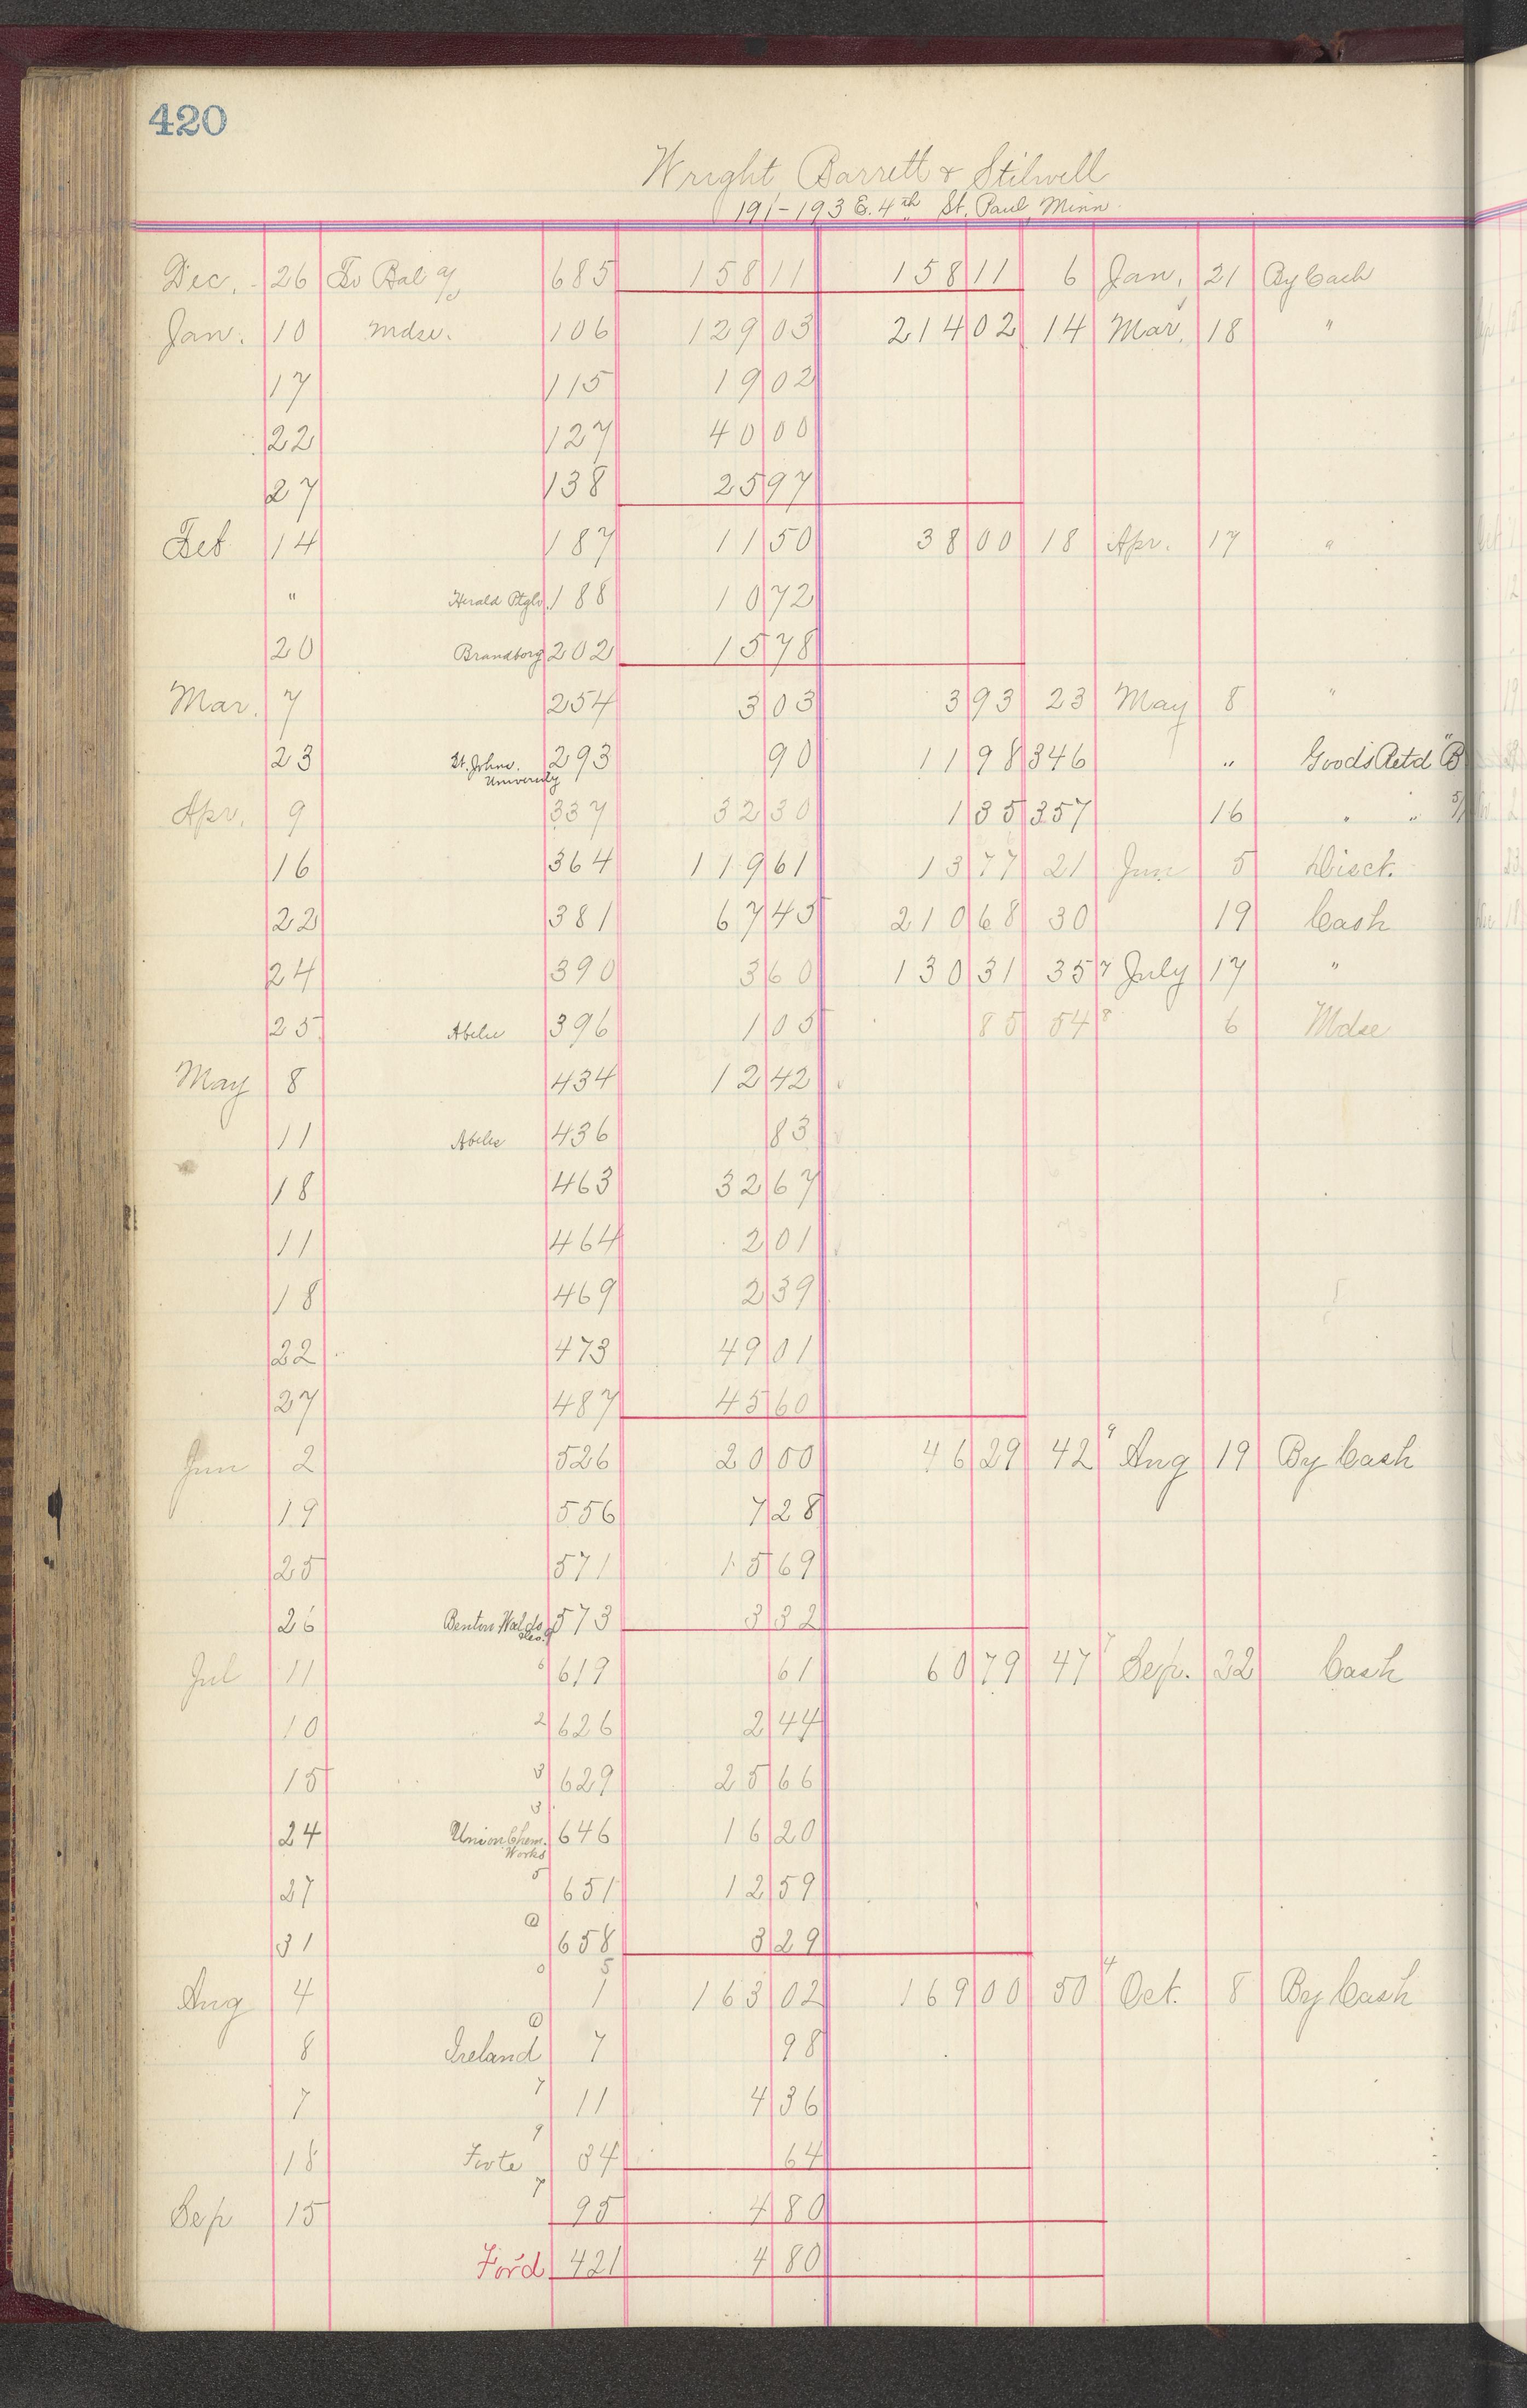 420
Wright Barrett & Stilwell
191-193 E. 4th St. Paul, Minn.
Dec. 26 To Bal 685 158 11 158 11 6 Jan. 21 By Cash
Jan. 10 Mdse. 106 129 03 214 02 14 Mar. 18 "
17 115 19 02
22 127 40 00
27 138 25 97
Feb 14 187 11 50 38 00 18 Apr. 17 "
" Herald 188 10 72
20 Brandborg 202 15 78
Mar. 7 254 3 03 3 93 23 May 8 "
23 St. Johns University 293 90 11 98 346 " Goods Retd
Apr. 9 337 32 30 1 35 357 16 " "
16 364 119 61 13 77 21 Jun 5 Disct.
22 381 67 45 210 68 30 19 Cash
24 390 3 60 130 31 35 7 July 17 "
25 Abele 396 1 05 85 54 8 6 Mdse
May 8 434 12 42
11 Abele 436 83
18 463 32 67
11 464 2 01
18 469 2 39
22 473 49 01
27 487 45 60
Jun 2 526 20 00 46 29 42 9 Aug 19 By Cash
19 556 7 28
25 571 15 69
26 573 3 32
Jul 11 619 61 60 79 47 7 Sep. 22 Cash
10 2 626 2 44
15 3 629 25 66
24 3 Union Chem. Works 646 16 20
27 5 651 12 59
31 658 3 29
Aug 4 1 163 02 169 00 50 4 Oct. 8 By Cash
8 Ireland 7 98
7 7 11 4 36
18 9 Foote 34 64
Sep 15 7 95 4 80
For'd 421 4 80